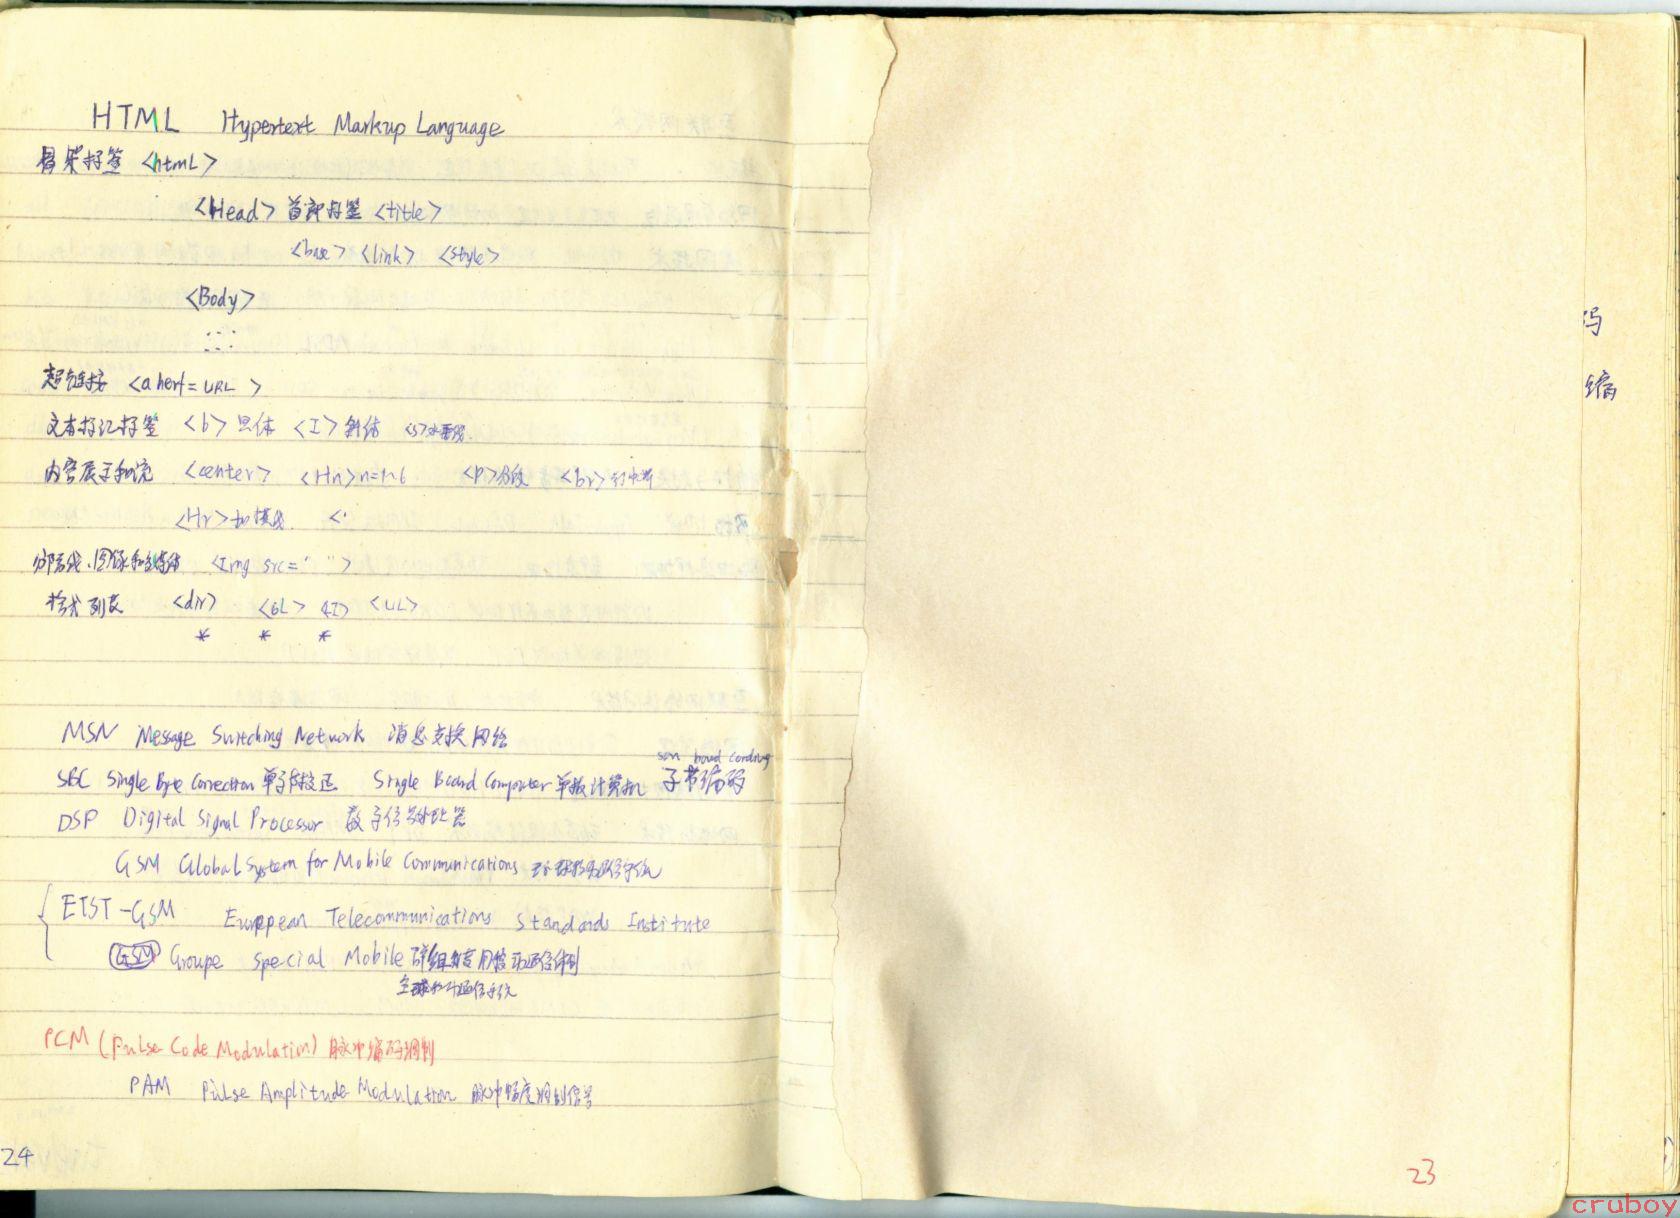 HTML Hypertext Markup Language
骨架标签 <html>
<Head> 首部标签 <title>
<base> <link> <style>
<Body>
超链接 <a herf=URL >
文本标记标签 <b> 黑体 <I> 斜体 <S>
内容展示和 <center> <Hn> n=1~6 <P>分段 <br>
<Hr>加横线 <
图像和 <Img src=" " >
格式列表 <dir> <OL> <LI> <UL>
* * *
MSN Message Switching Network 消息交换网络
sem board cording
SBC Single Byte Correction 单字节校正 Single Board Computer 单板计算机 子带编码
DSP Digital Signal Processor 数字信号处理器
GSM Global System for Mobile Communications
ETST-GSM European Telecommunications Standards Institute
GSM Groupe special Mobile
PCM (Pulse Code Modulation) 脉冲编码调制
PAM Pulse Amplitude Modulation 脉冲幅度调制信号
24
码
编
23
cruboy